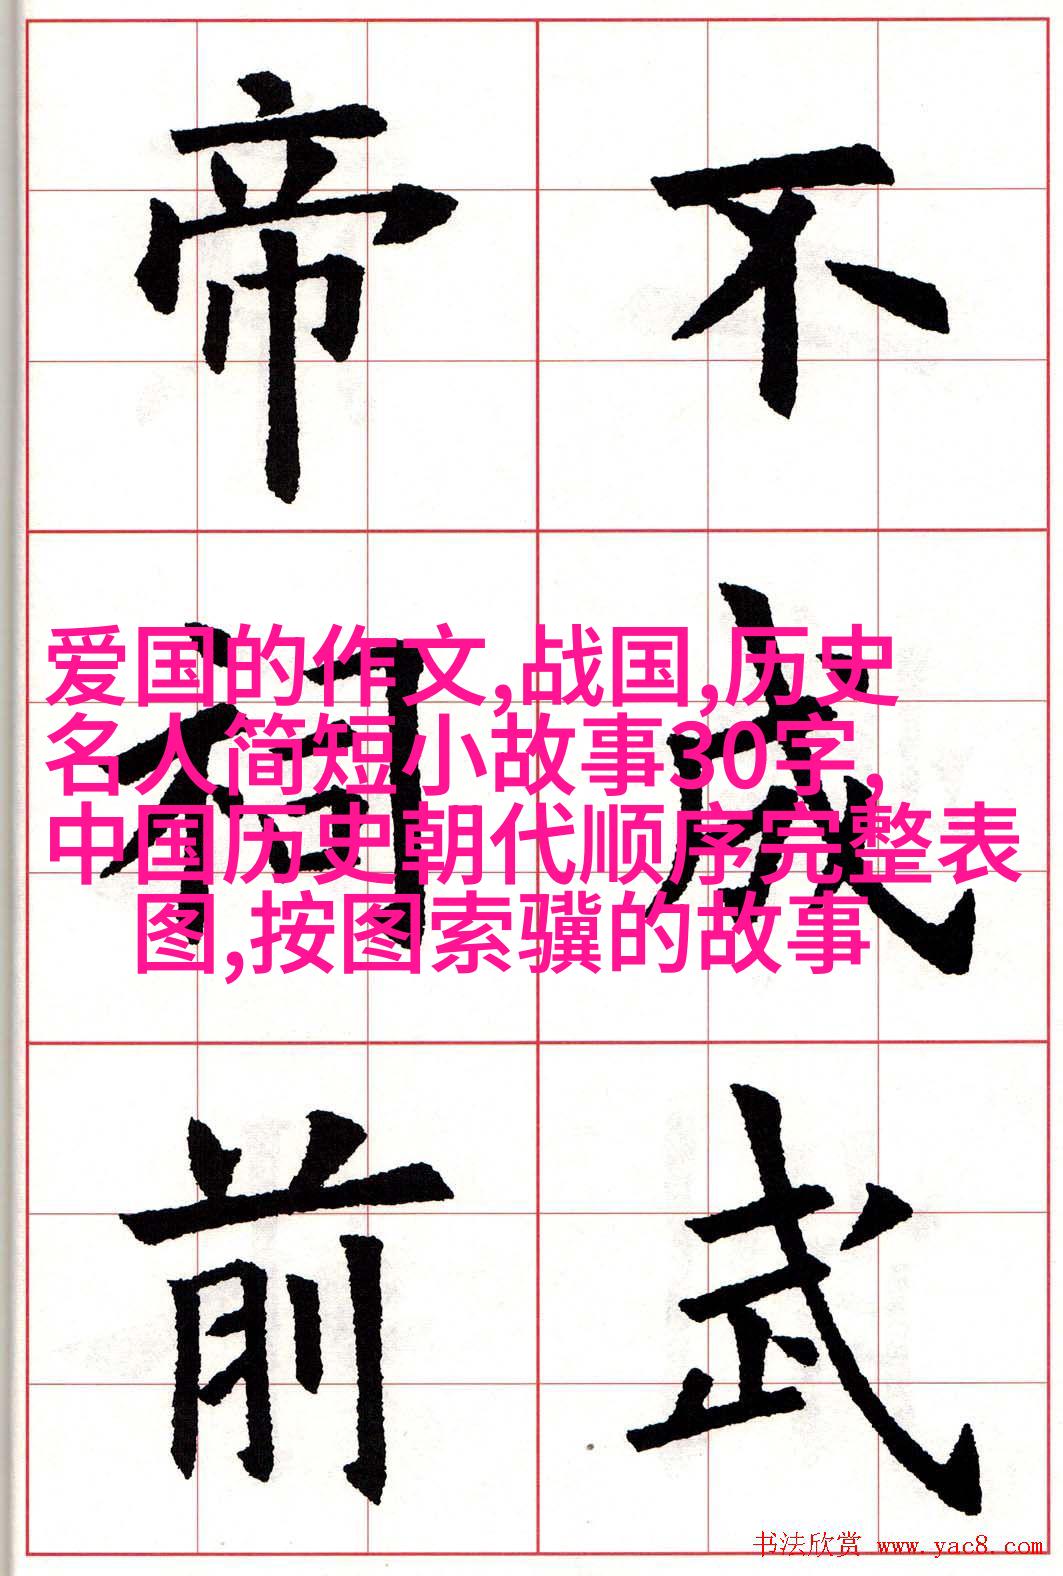 不
武
帝
祠
前
爱国的作文,战国,历史
名人简短小故事30字,
中国历史朝代顺序完整表
图,按图索骥的故事
书法欣赏 www.yac8.com